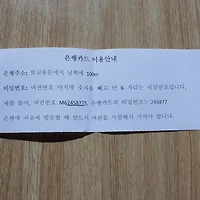 은행카드 이용안내
은행주소: 학교동문에서 남쪽에 100m
비밀번호: 여권번호 마지막 숫자를 빼고 난 6 자리는 비밀번호입니다.
예를 들어, 여권번호: M62458775, 은행카드의 비밀번호는: 245877
은행에 처음에 방문할 때 반드시 여권을 지참해서 가셔야 합니다.